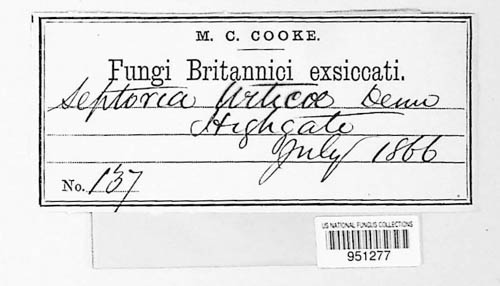 M. C. COOKE.
Fungi Britannici exsiccati.
Septoria Urticæ Desm
Highgate
July 1866
No. 137
US NATIONAL FUNGUS COLLECTIONS
951277